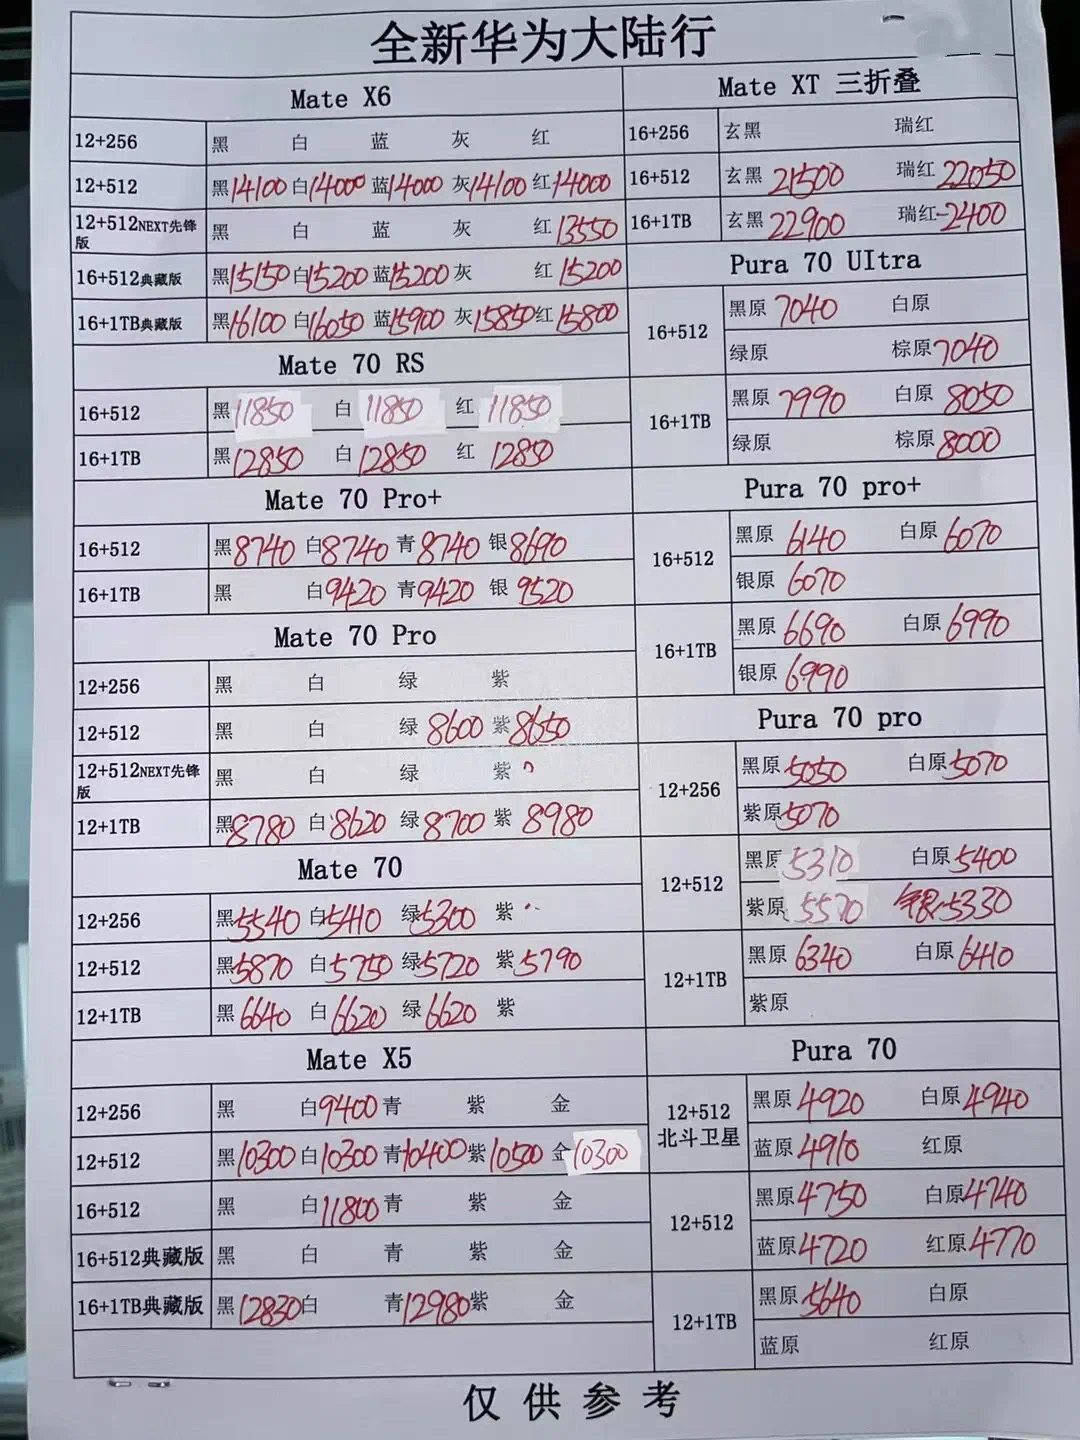 全新华为大陆行
Mate X6
12+256 黑 白 蓝 灰 红
12+512 黑14100 白14000 蓝14000 灰14100 红14000
12+512NEXT先锋版 黑 白 蓝 灰 红13550
16+512典藏版 黑15150 白15200 蓝15200 灰 红15200
16+1TB典藏版 黑16100 白16050 蓝15900 灰15850 红15800
Mate 70 RS
16+512 黑11850 白11850 红11850
16+1TB 黑12850 白12850 红12850
Mate 70 Pro+
16+512 黑8740 白8740 青8740 银8690
16+1TB 黑 白9420 青9420 银9520
Mate 70 Pro
12+256 黑 白 绿 紫
12+512 黑 白 绿8600 紫8650
12+512NEXT先锋版 黑 白 绿 紫
12+1TB 黑8780 白8620 绿8700 紫8980
Mate 70
12+256 黑5540 白5410 绿5300 紫
12+512 黑5870 白5750 绿5720 紫5790
12+1TB 黑6640 白6620 绿6620 紫
Mate X5
12+256 黑 白9400 青 紫 金
12+512 黑10300 白10300 青10400 紫10500 金10300
16+512 黑 白11800 青 紫 金
16+512典藏版 黑 白 青 紫 金
16+1TB典藏版 黑12830 白 青12980 紫 金
Mate XT 三折叠
16+256 玄黑 瑞红
16+512 玄黑 21500 瑞红 22050
16+1TB 玄黑 22900 瑞红-2400
Pura 70 UItra
16+512 黑原 7040 白原
绿原 棕原7040
16+1TB 黑原 7990 白原 8050
绿原 棕原8000
Pura 70 pro+
16+512 黑原 6140 白原 6070
银原 6070
16+1TB 黑原 6690 白原 6990
银原 6990
Pura 70 pro
12+256 黑原5050 白原5070
紫原5070
12+512 黑原5310 白原5400
紫原 5570 银5330
12+1TB 黑原 6340 白原 6410
紫原
Pura 70
12+512 北斗卫星 黑原4920 白原4940
蓝原4910 红原
12+512 黑原4750 白原4740
蓝原4720 红原4770
12+1TB 黑原5640 白原
蓝原 红原
仅供参考